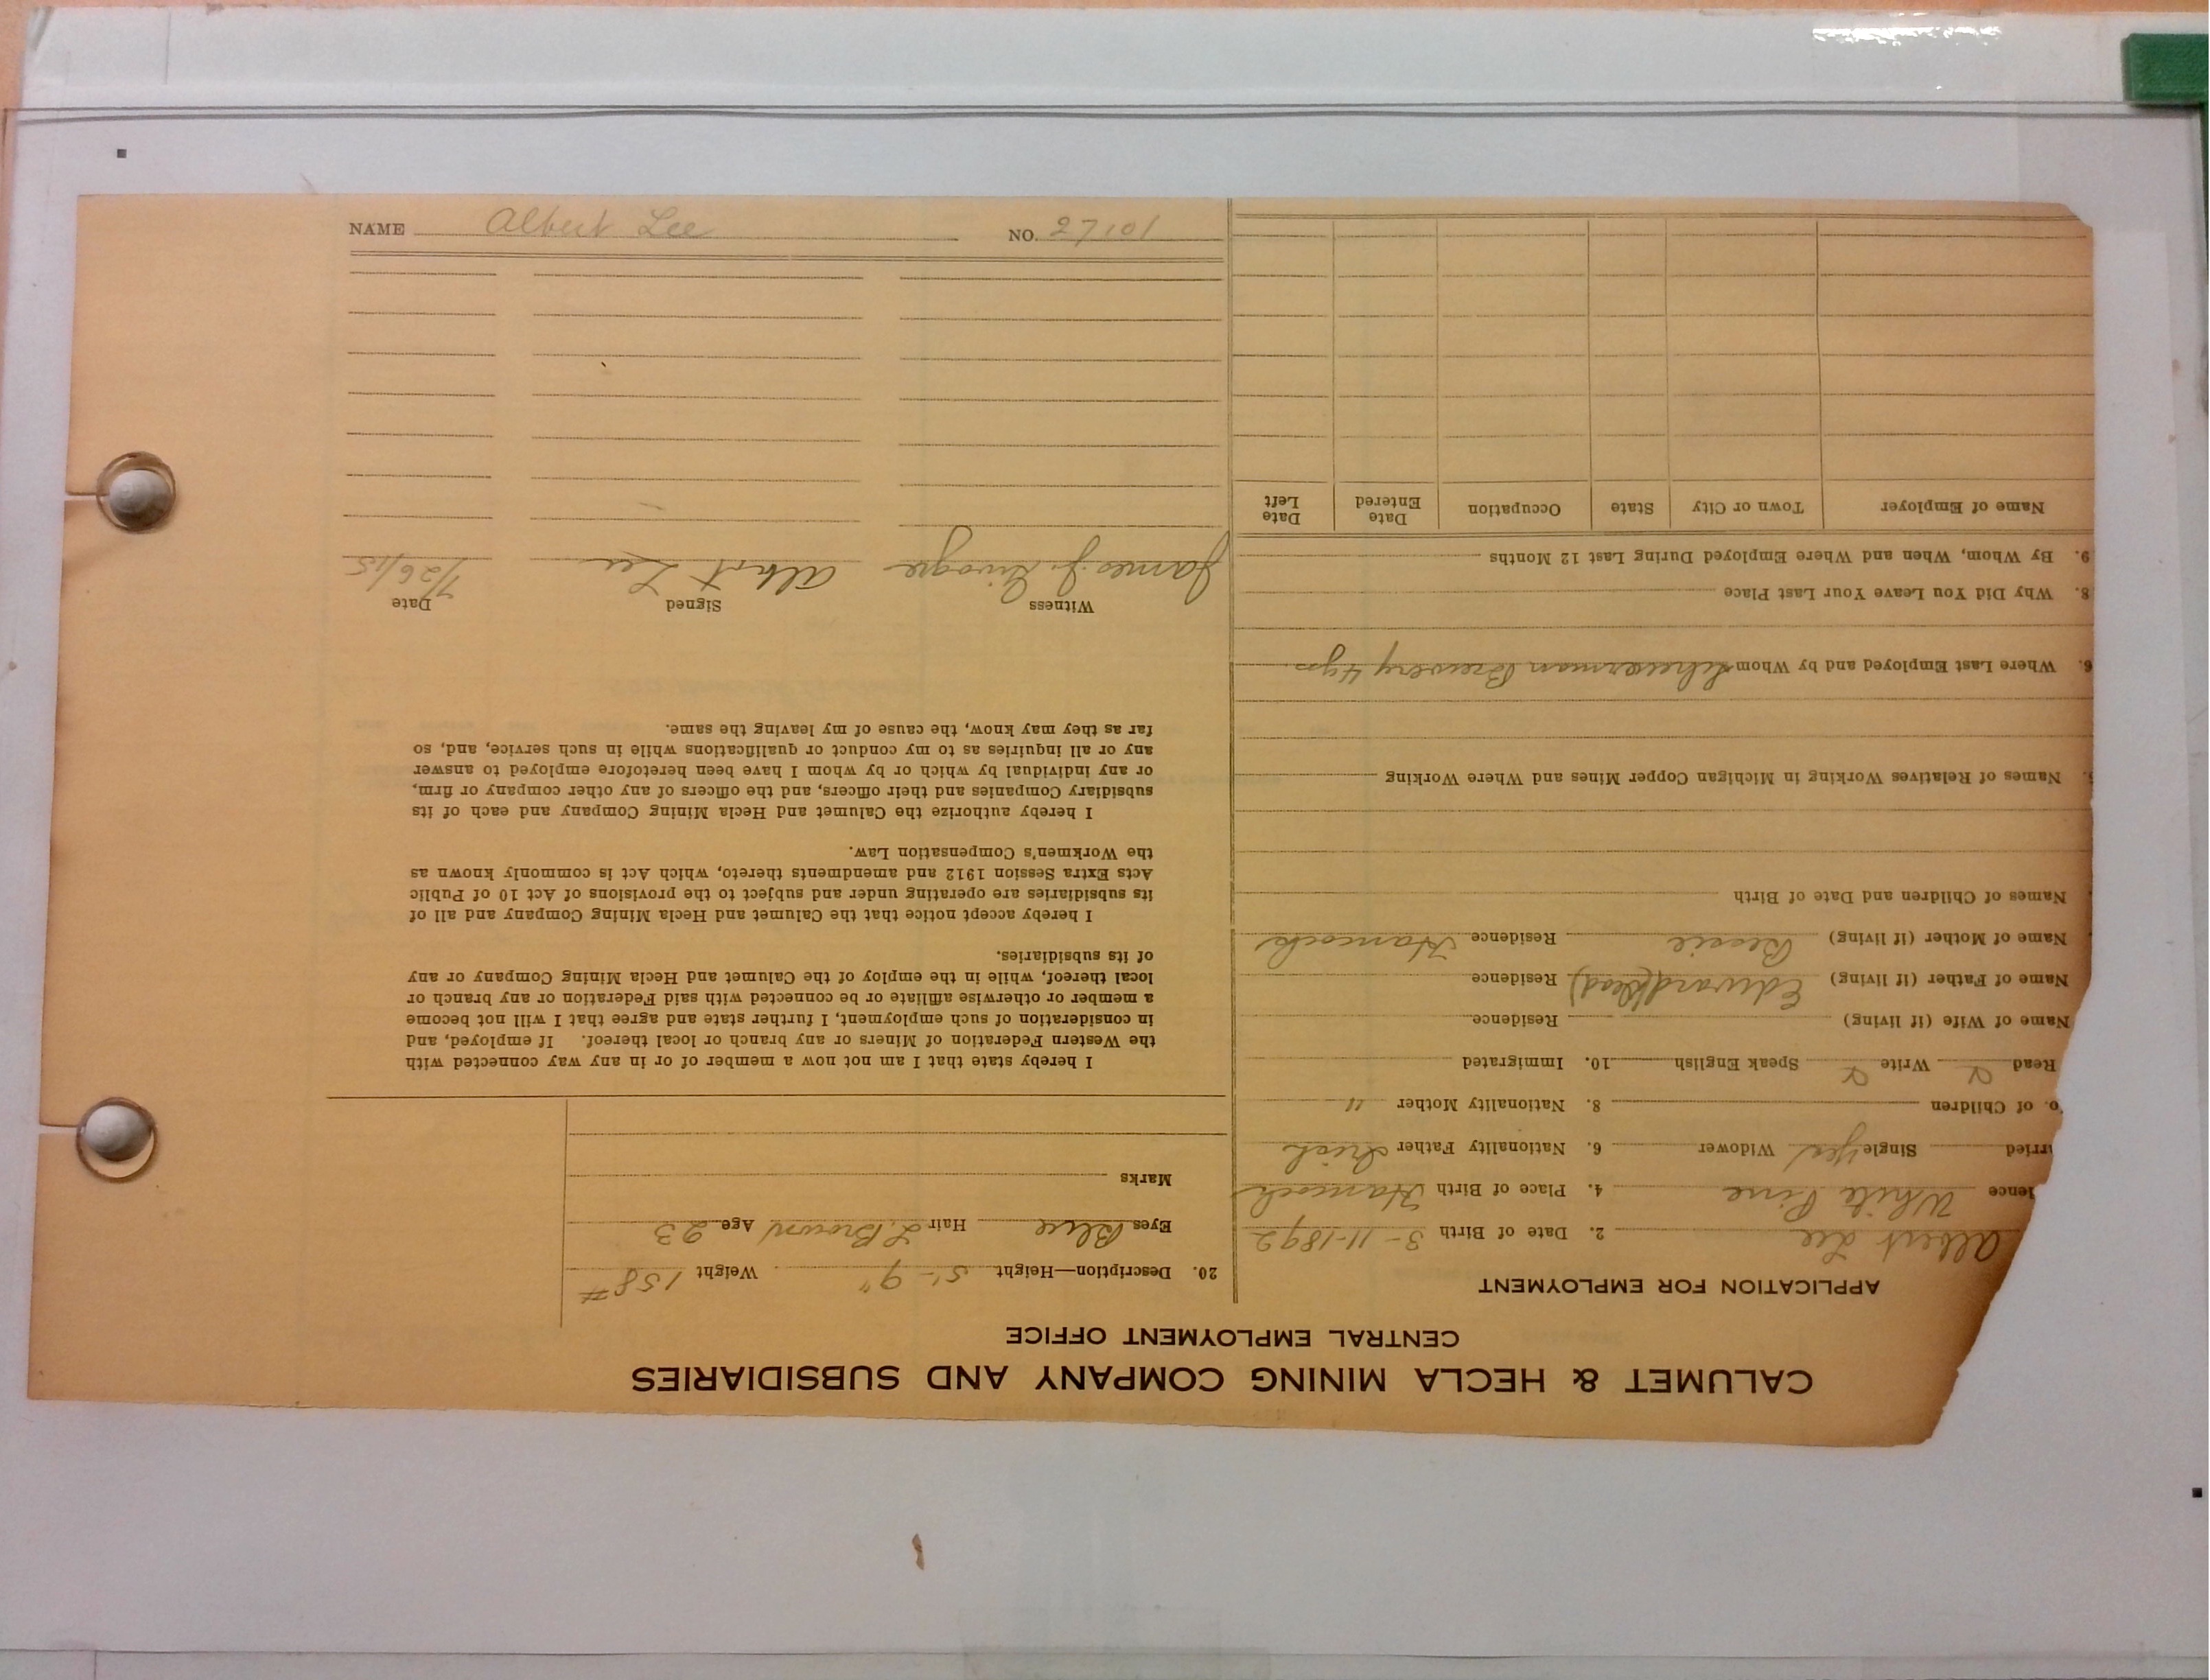 CALUMET & HECLA MINING COMPANY AND SUBSIDIARIES
CENTRAL EMPLOYMENT OFFICE
APPLICATION FOR EMPLOYMENT
Albert Lee 2. Date of Birth 3-11-1892
lence White Pine 4. Place of Birth Hancock
rried Single Yes Widower 6. Nationality Father Irish
o. of Children 8. Nationality Mother "
Read Write Speak English 10. Immigrated
Name of Wife (if living) Residence
Name of Father (if living) Edward (Dead) Residence
Name of Mother (if living) Bessie Residence Hancock
Names of Children and Date of Birth
Names of Relatives Working in Michigan Copper Mines and Where Working
6. Where Last Employed and by Whom Scheuerman Brewery 4 yrs.
8. Why Did You Leave Your Last Place
9. By Whom, When and Where Employed During Last 12 Months
Name of Employer Town or City State Occupation Date Entered Date Left
20. Description—Height 5'-9" Weight 158#
Eyes Blue Hair L. Brown Age 23
Marks
I hereby state that I am not now a member of or in any way connected with
the Western Federation of Miners or any branch or local thereof. If employed, and
in consideration of such employment, I further state and agree that I will not become
a member or otherwise affiliate or be connected with said Federation or any branch or
local thereof, while in the employ of the Calumet and Hecla Mining Company or any
of its subsidiaries.
I hereby accept notice that the Calumet and Hecla Mining Company and all of
its subsidiaries are operating under and subject to the provisions of Act 10 of Public
Acts Extra Session 1912 and amendments thereto, which Act is commonly known as
the Workmen's Compensation Law.
I hereby authorize the Calumet and Hecla Mining Company and each of its
subsidiary Companies and their officers, and the officers of any other company or firm,
or any individual by which or by whom I have been heretofore employed to answer
any or all inquiries as to my conduct or qualifications while in such service, and, so
far as they may know, the cause of my leaving the same.
Witness Signed Date
James J. Albert Lee 7/26/15
NAME Albert Lee NO. 27101